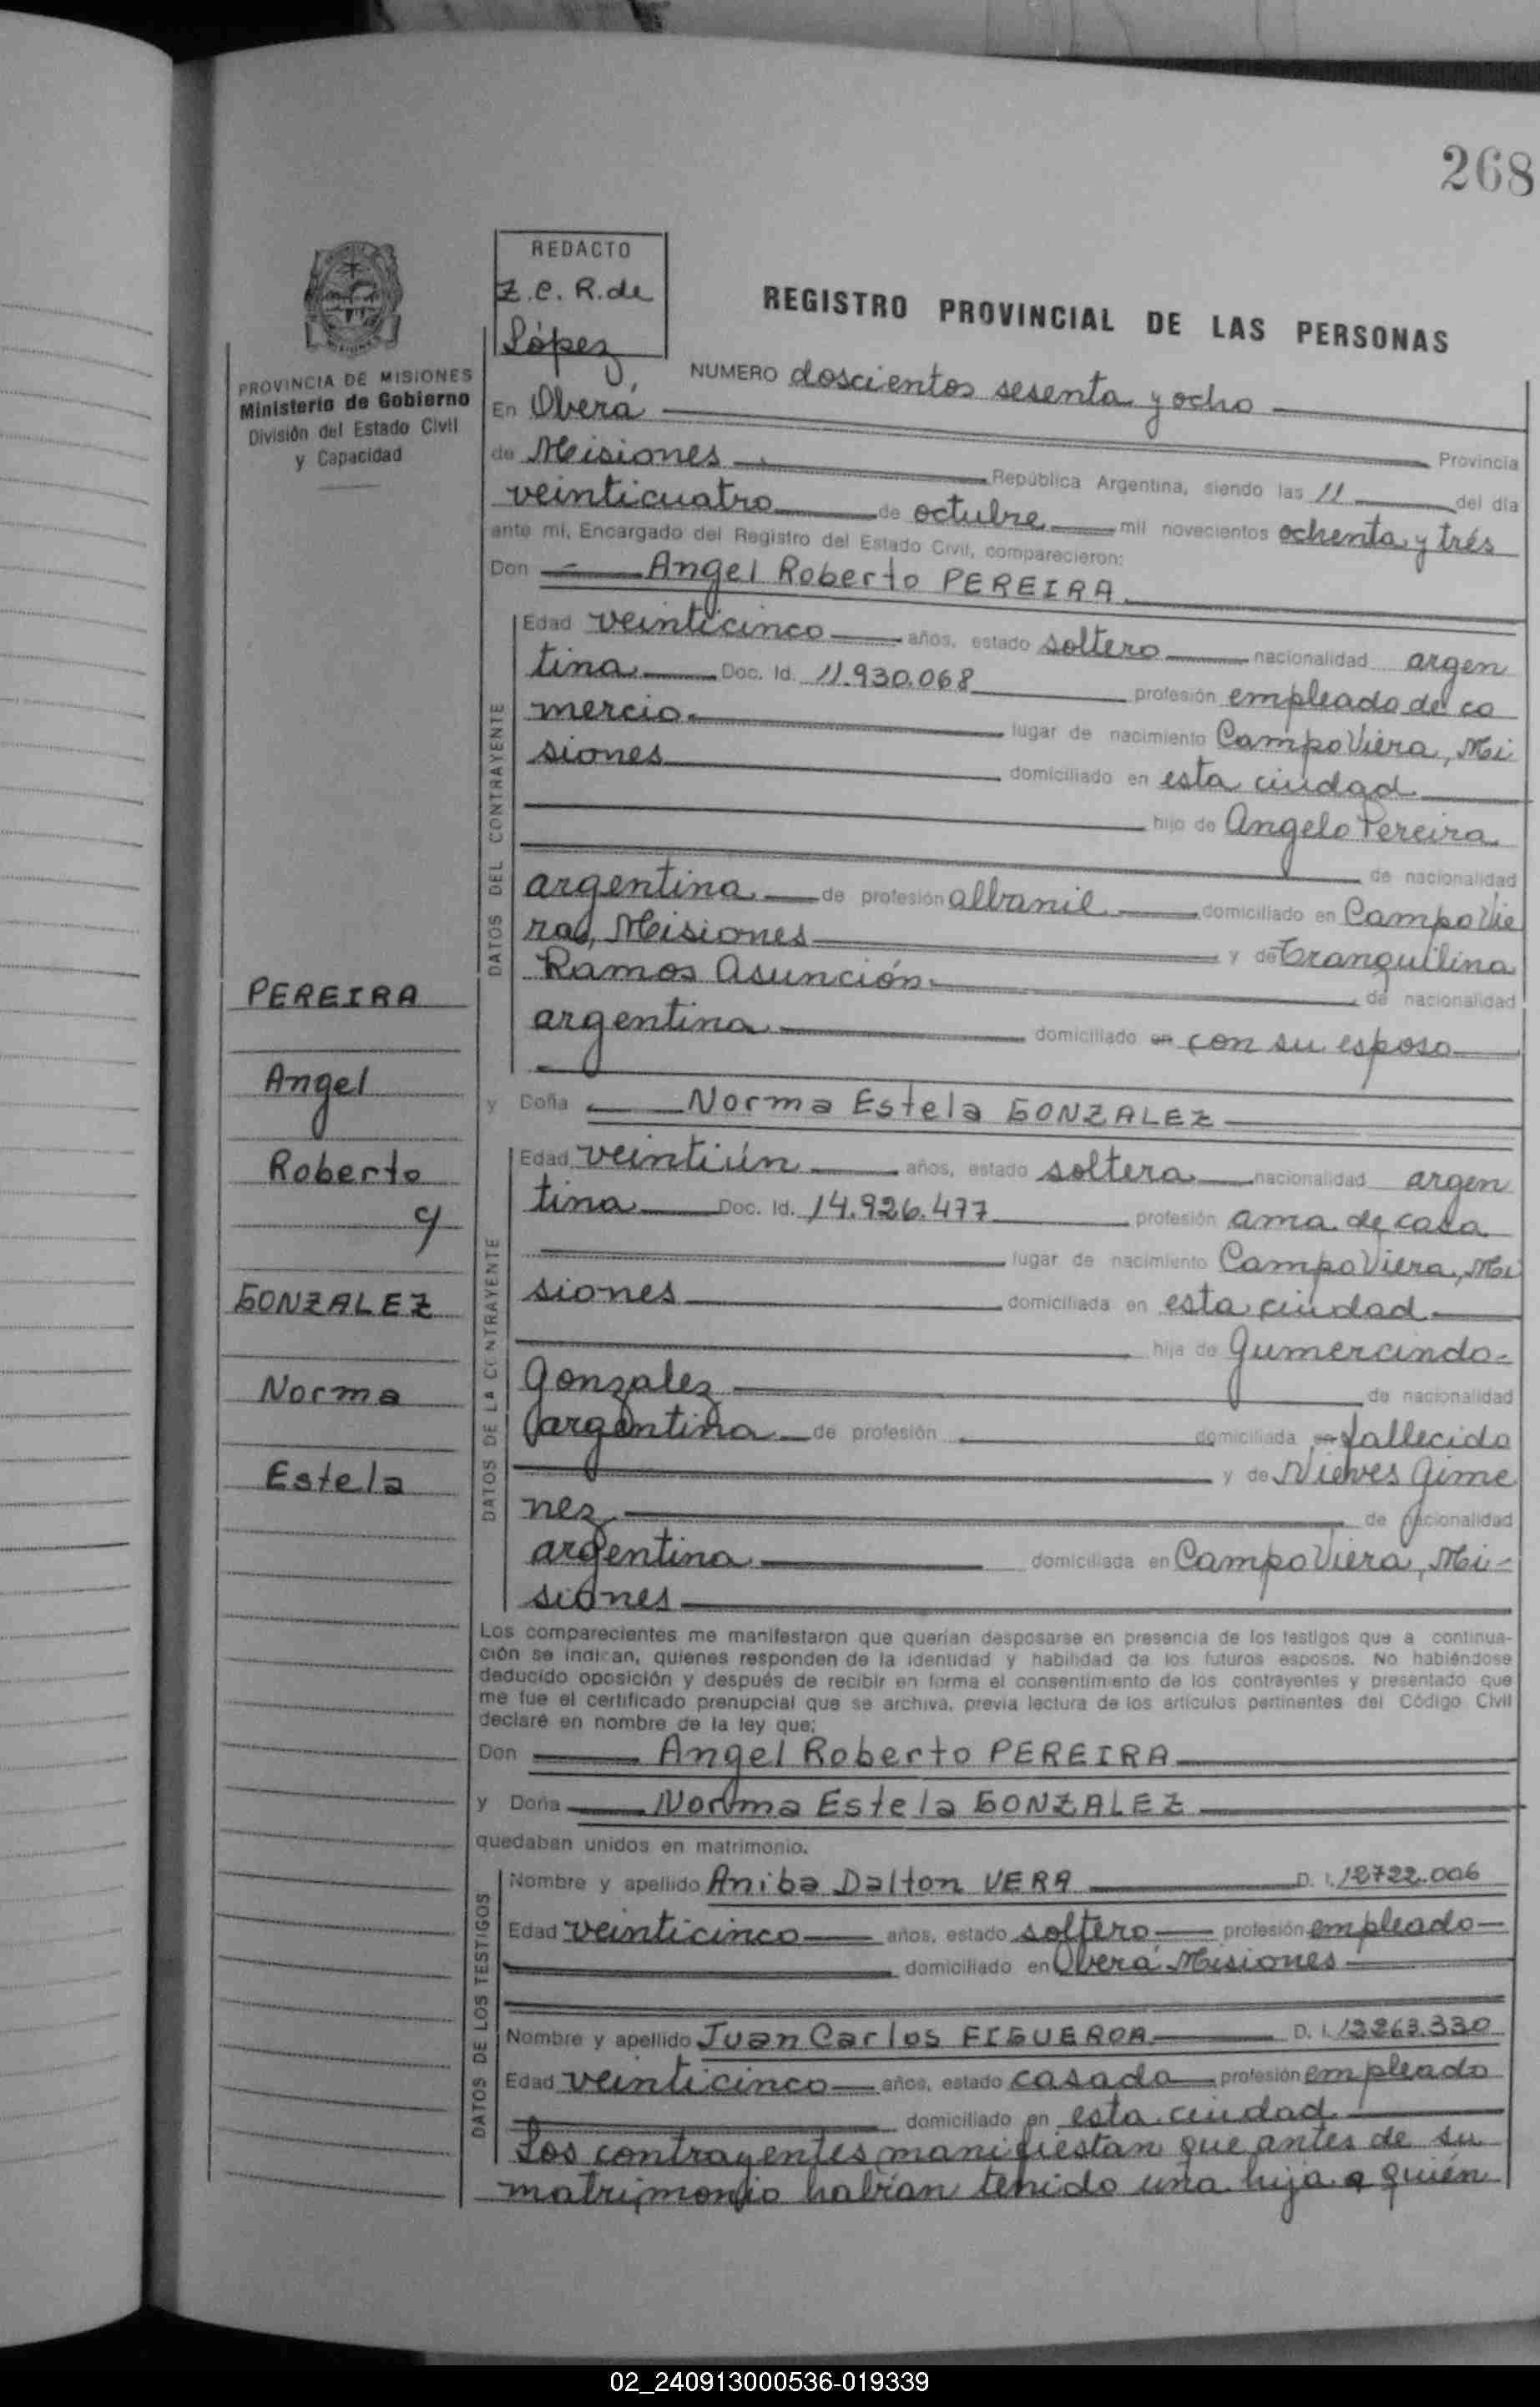 268
REDACTO
Z.C. R. de
López
REGISTRO PROVINCIAL DE LAS PERSONAS
PROVINCIA DE MISIONES
Ministerio de Gobierno
División del Estado Civil
y Capacidad
NUMERO doscientos sesenta y ocho
En Oberá Provincia
de Misiones República Argentina, siendo las 11 del día
veinticuatro de octubre mil novecientos ochenta y trés
ante mi, Encargado del Registro del Estado Civil, comparecieron:
Don Angel Roberto PEREIRA
DATOS DEL CONTRAYENTE
Edad veinticinco años, estado soltero nacionalidad argen
tina Doc. Id. 11.930.068 profesión empleado de co
mercio. lugar de nacimiento Campo Viera, Mi
siones domiciliado en esta ciudad
hijo de Angelo Pereira
de nacionalidad
argentina de profesión albanil domiciliado en Campo Vie
ra, Misiones y de Tranquilina
Ramos Asunción de nacionalidad
argentina domiciliado en con su esposo
y Doña Norma Estela GONZALEZ
DATOS DE LA CONTRAYENTE
Edad veintiún años, estado soltera nacionalidad argen
tina Doc. Id. 14.926.477 profesión ama de casa
lugar de nacimiento Campo Viera, Mi
siones domiciliada en esta ciudad.
hija de Gumercindo
Gonzalez de nacionalidad
argentina de profesión domiciliada en fallecido
y de Nieves Gime
nez de nacionalidad
argentina domiciliada en Campo Viera, Mi-
siones
Los comparecientes me manifestaron que querían desposarse en presencia de los testigos que a continua-
ción se indican, quienes responden de la identidad y habilidad de los futuros esposos. No habiéndose
deducido oposición y después de recibir en forma el consentimiento de los contrayentes y presentado que
me fue el certificado prenupcial que se archiva, previa lectura de los artículos pertinentes del Código Civil
declaré en nombre de la ley que;
Don Angel Roberto PEREIRA
y Doña Norma Estela GONZALEZ
quedaban unidos en matrimonio.
DATOS DE LOS TESTIGOS
Nombre y apellido Aniba Dalton VERA D. I. 12722.006
Edad veinticinco años, estado soltero profesión empleado
domiciliado en Oberá Misiones
Nombre y apellido Juan Carlos FIGUEROA D. I. 13263.330
Edad veinticinco años, estado casado profesión empleado
domiciliado en esta ciudad
Los contrayentes manifiestan que antes de su
matrimonio habían tenido una hija a quién
PEREIRA
Angel
Roberto
y
GONZALEZ
Norma
Estela
02_240913000536-019339